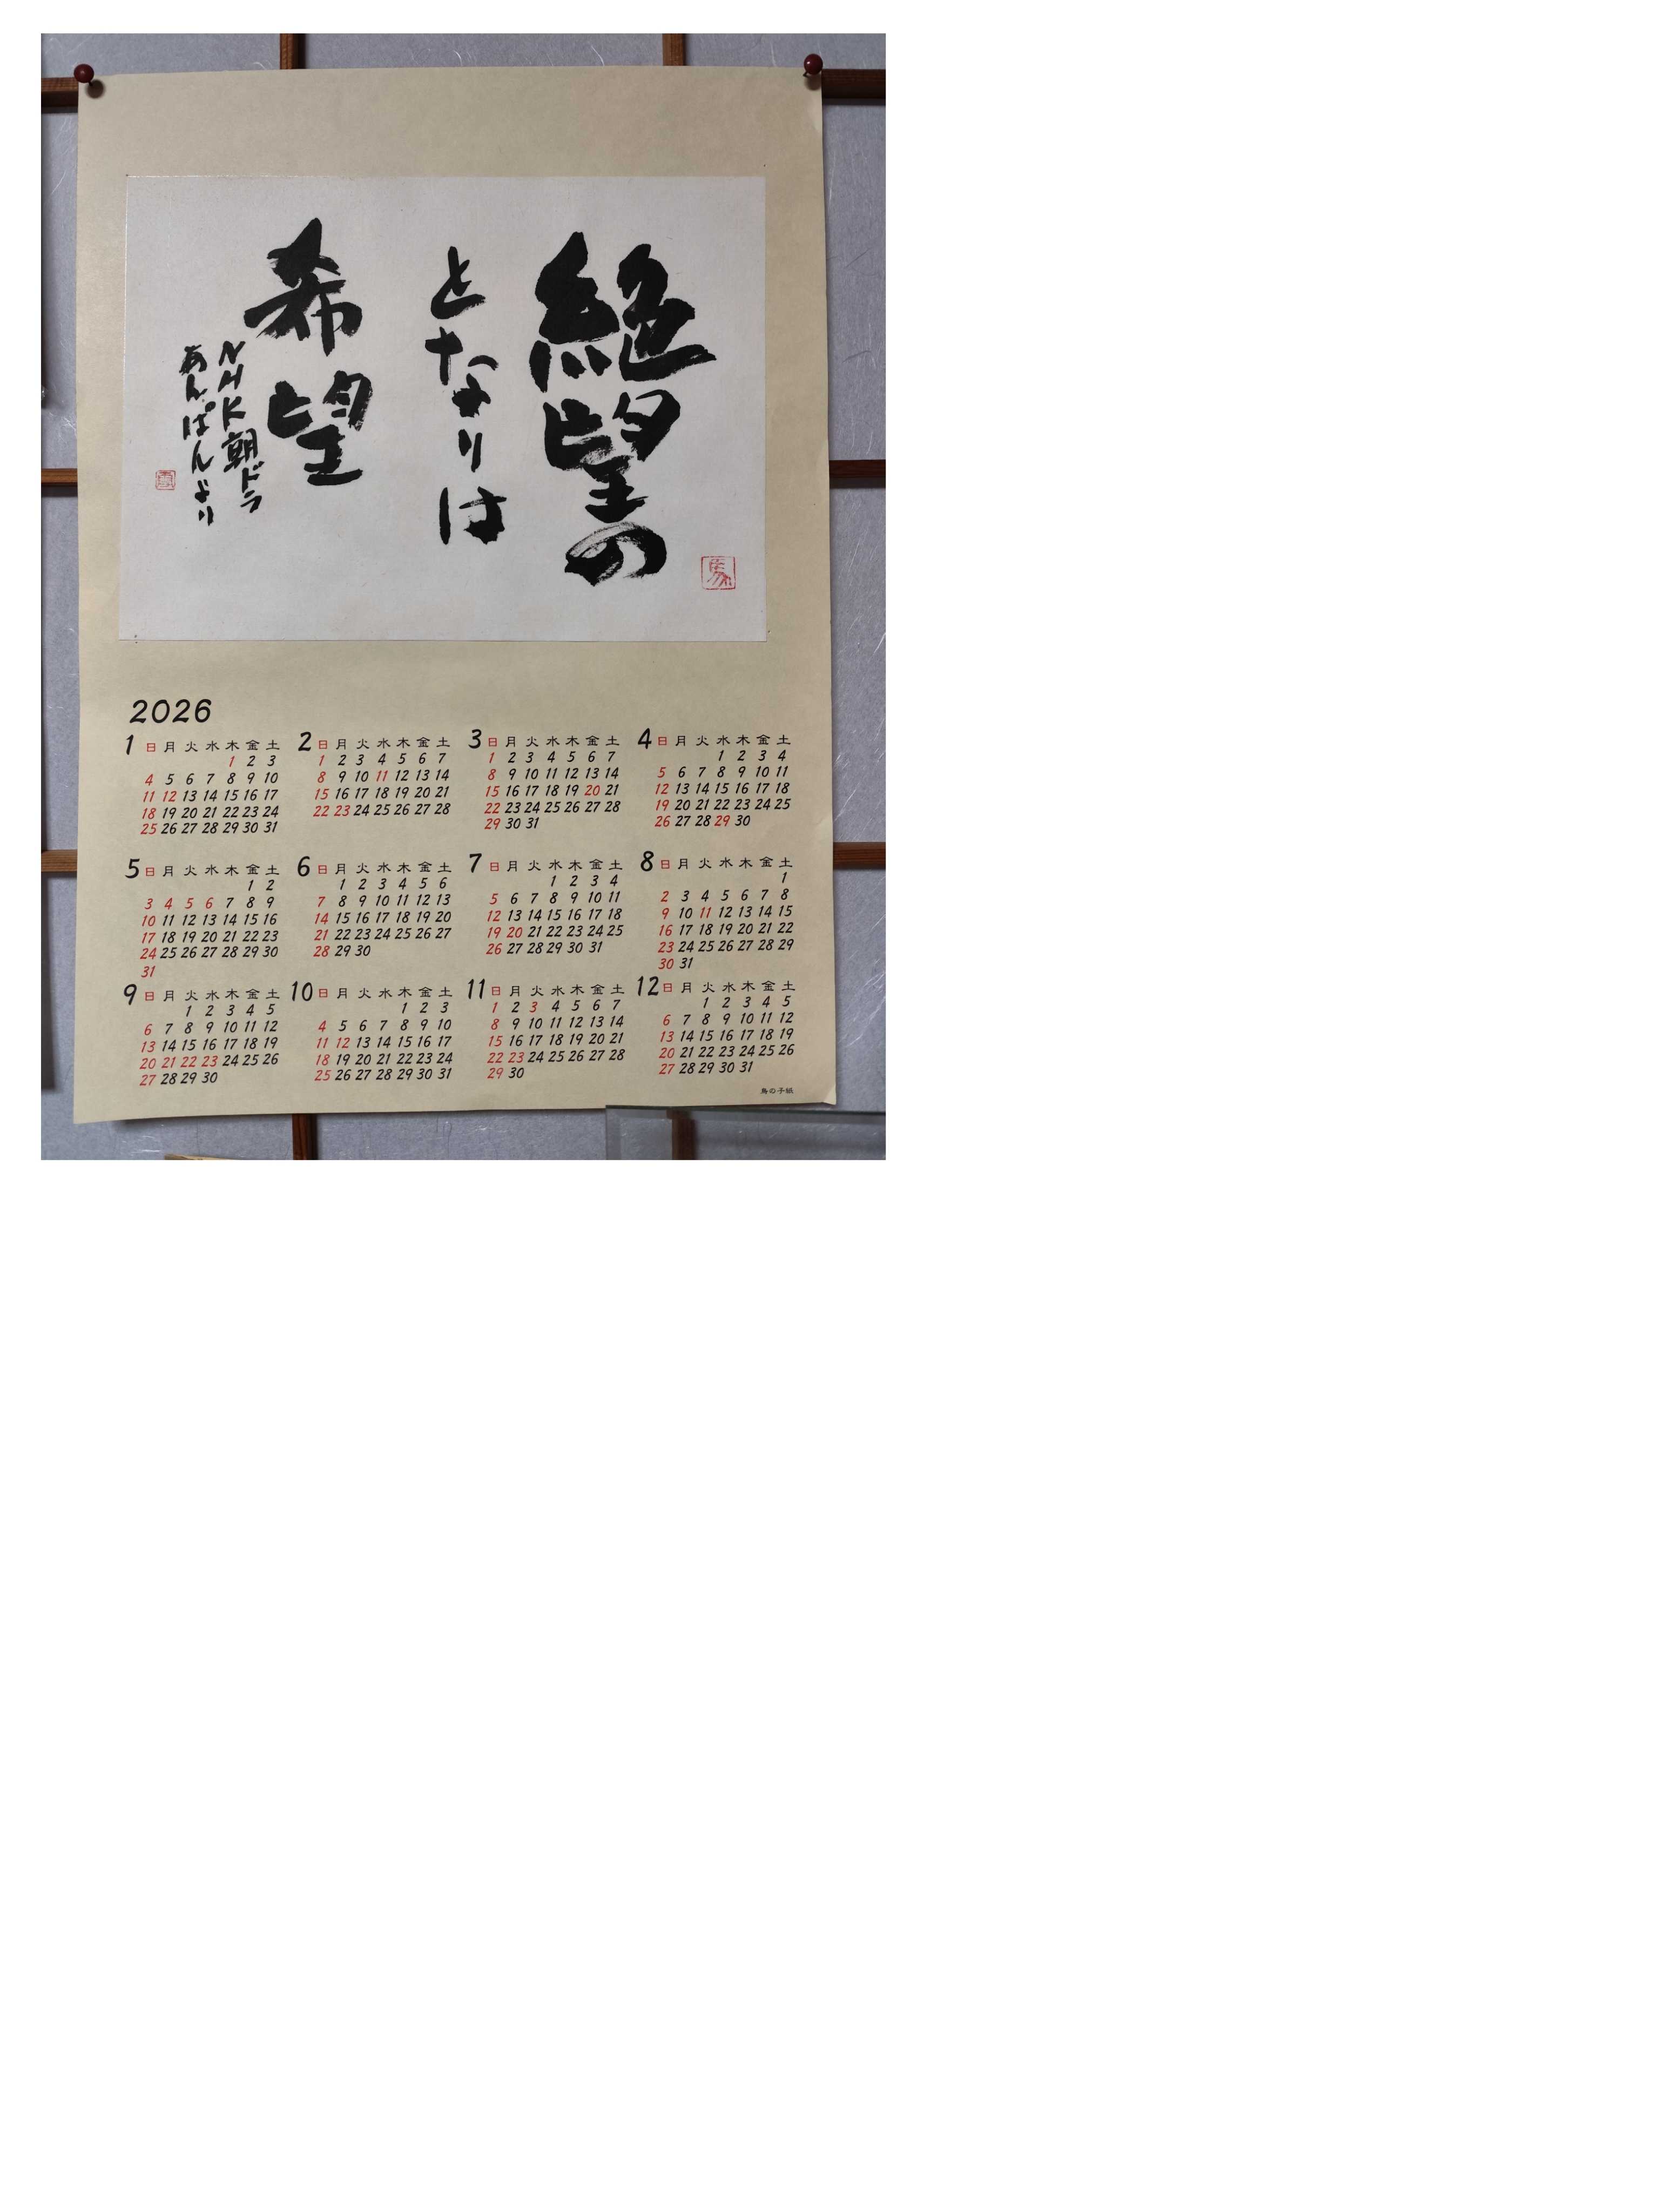 絶望の
となりは
希望
NHK朝ドラ
あんぱんより
馬
2026
1 日 月 火 水 木 金 土
1 2 3
4 5 6 7 8 9 10
11 12 13 14 15 16 17
18 19 20 21 22 23 24
25 26 27 28 29 30 31
2 日 月 火 水 木 金 土
1 2 3 4 5 6 7
8 9 10 11 12 13 14
15 16 17 18 19 20 21
22 23 24 25 26 27 28
3 日 月 火 水 木 金 土
1 2 3 4 5 6 7
8 9 10 11 12 13 14
15 16 17 18 19 20 21
22 23 24 25 26 27 28
29 30 31
4 日 月 火 水 木 金 土
1 2 3 4
5 6 7 8 9 10 11
12 13 14 15 16 17 18
19 20 21 22 23 24 25
26 27 28 29 30
5 日 月 火 水 木 金 土
1 2
3 4 5 6 7 8 9
10 11 12 13 14 15 16
17 18 19 20 21 22 23
24 25 26 27 28 29 30
31
6 日 月 火 水 木 金 土
1 2 3 4 5 6
7 8 9 10 11 12 13
14 15 16 17 18 19 20
21 22 23 24 25 26 27
28 29 30
7 日 月 火 水 木 金 土
1 2 3 4
5 6 7 8 9 10 11
12 13 14 15 16 17 18
19 20 21 22 23 24 25
26 27 28 29 30 31
8 日 月 火 水 木 金 土
1
2 3 4 5 6 7 8
9 10 11 12 13 14 15
16 17 18 19 20 21 22
23 24 25 26 27 28 29
30 31
9 日 月 火 水 木 金 土
1 2 3 4 5
6 7 8 9 10 11 12
13 14 15 16 17 18 19
20 21 22 23 24 25 26
27 28 29 30
10 日 月 火 水 木 金 土
1 2 3
4 5 6 7 8 9 10
11 12 13 14 15 16 17
18 19 20 21 22 23 24
25 26 27 28 29 30 31
11 日 月 火 水 木 金 土
1 2 3 4 5 6 7
8 9 10 11 12 13 14
15 16 17 18 19 20 21
22 23 24 25 26 27 28
29 30
12 日 月 火 水 木 金 土
1 2 3 4 5
6 7 8 9 10 11 12
13 14 15 16 17 18 19
20 21 22 23 24 25 26
27 28 29 30 31
鳥の子紙